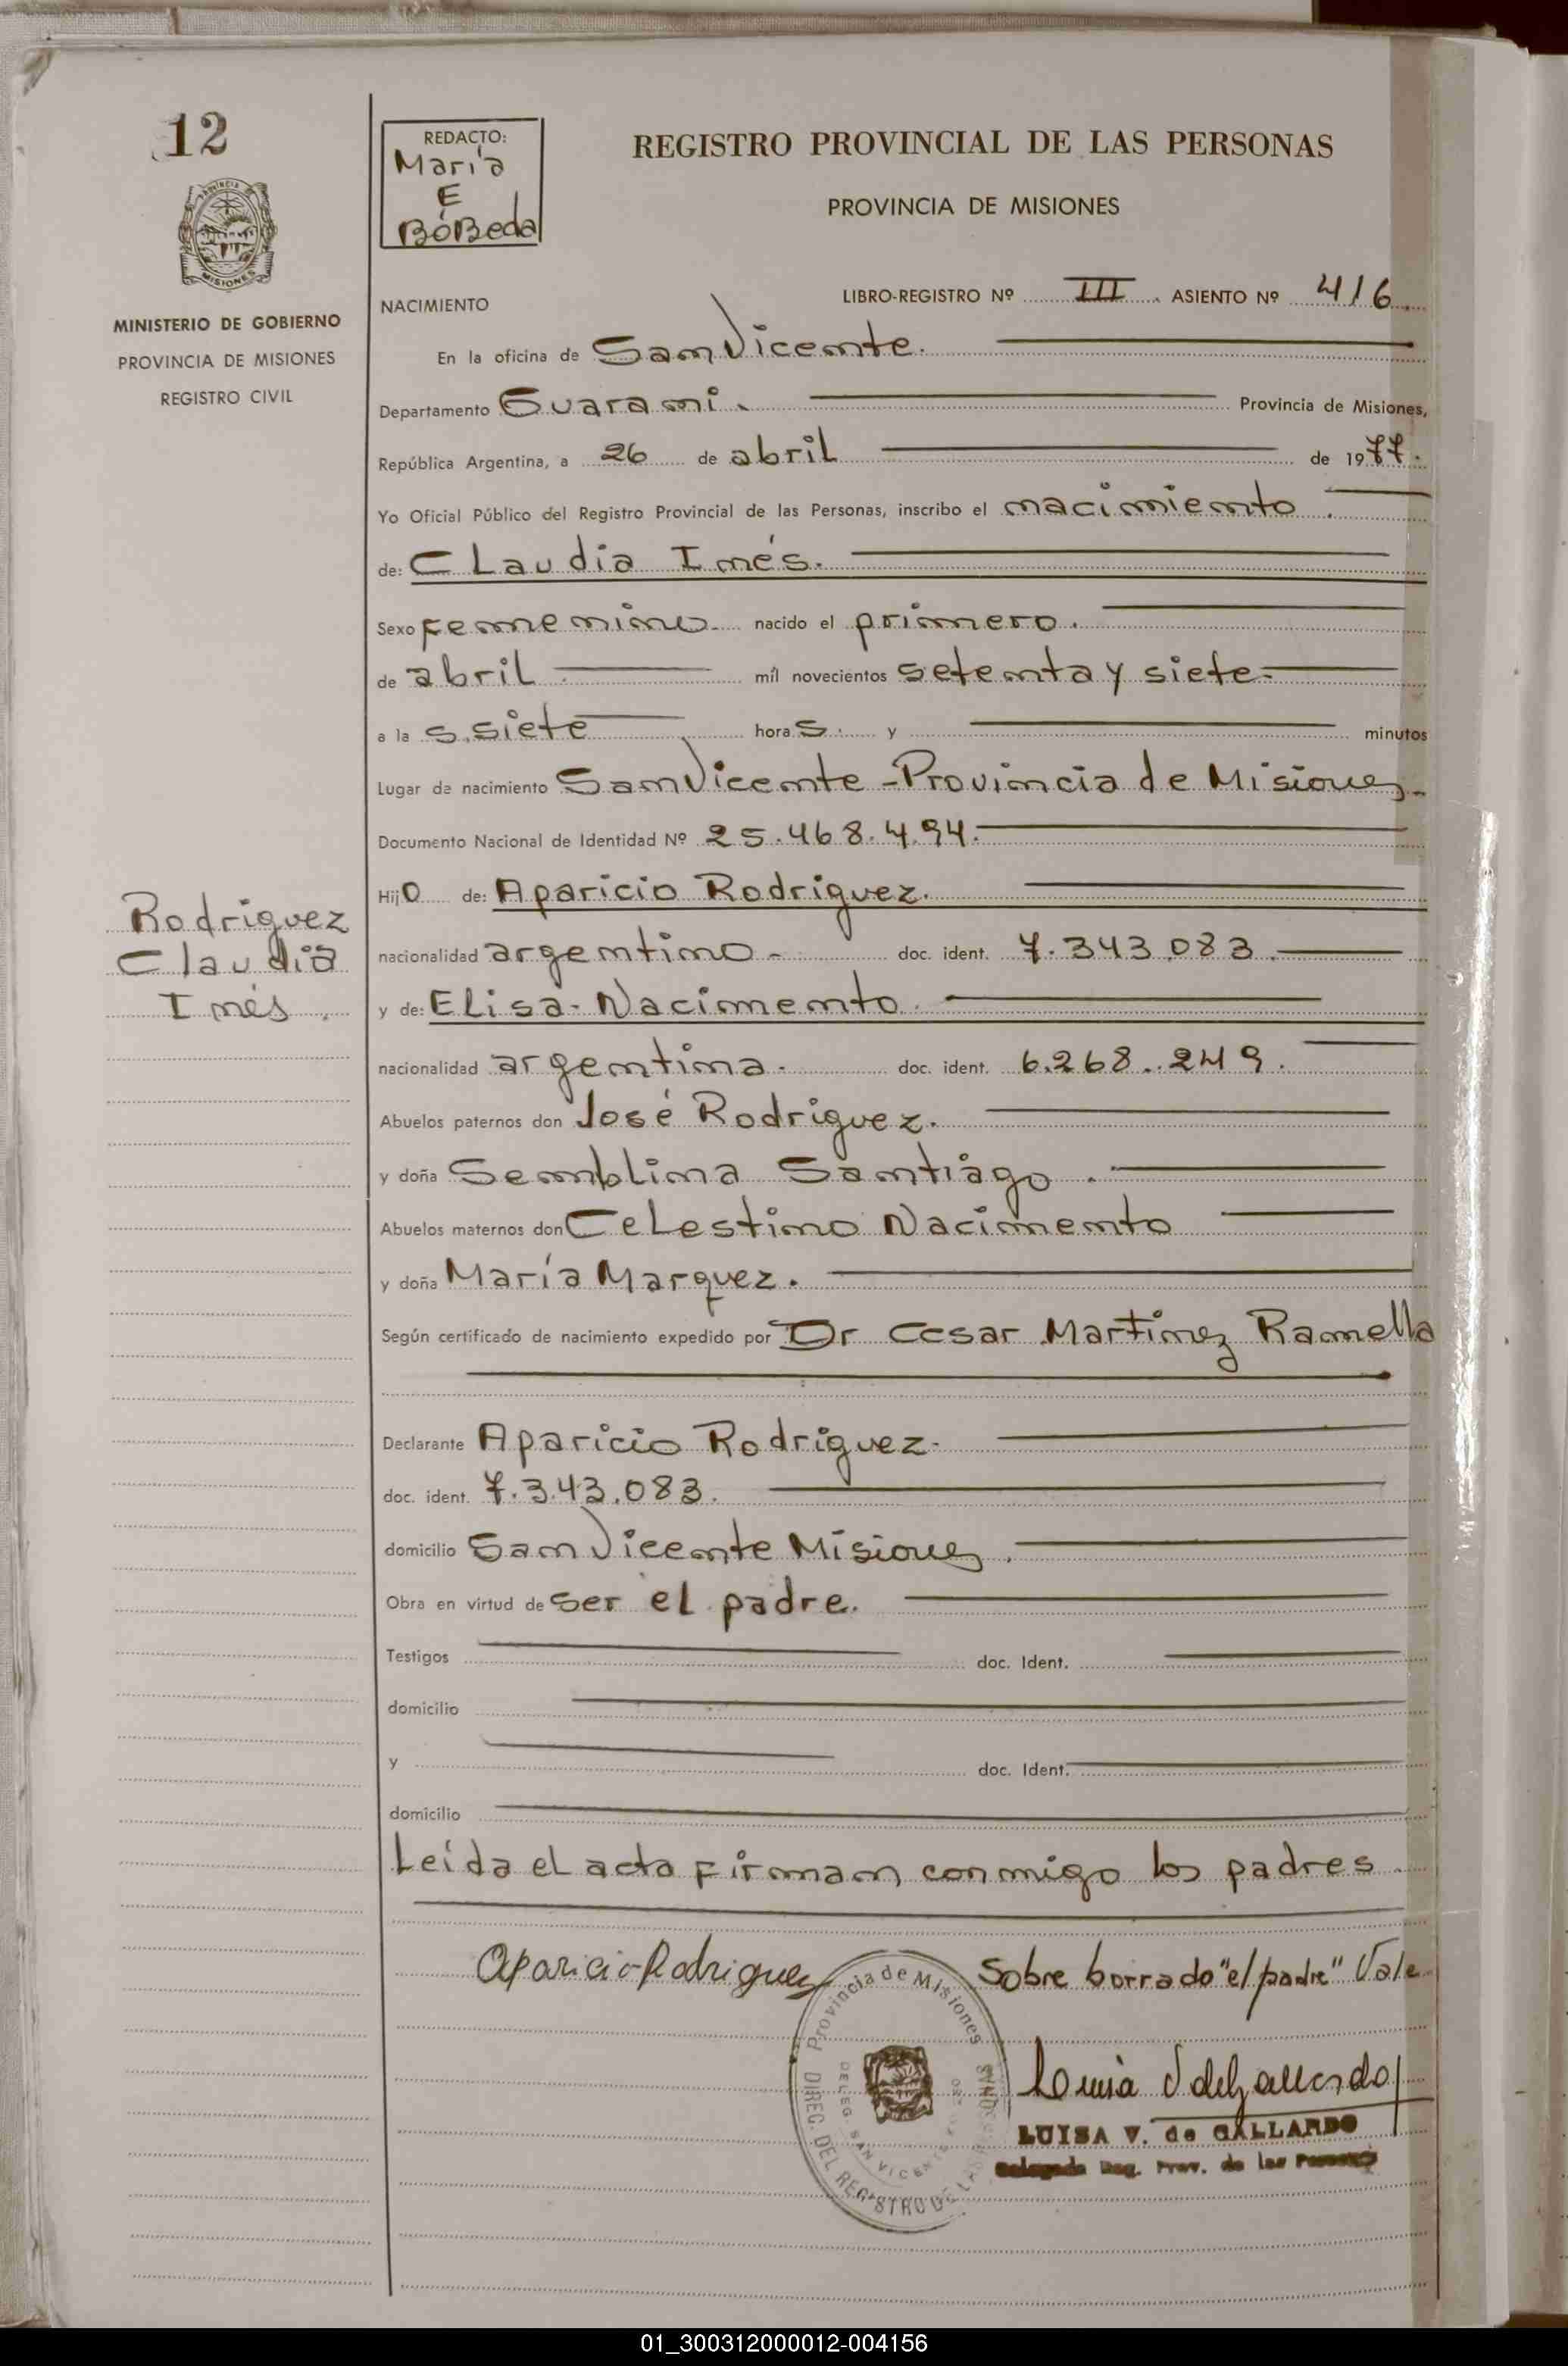 12
REDACTO:
María
E
BóBeda
REGISTRO PROVINCIAL DE LAS PERSONAS
PROVINCIA DE MISIONES
PROVINCIA
MISIONES
MINISTERIO DE GOBIERNO
PROVINCIA DE MISIONES
REGISTRO CIVIL
NACIMIENTO
LIBRO-REGISTRO Nº III. ASIENTO Nº 416.
En la oficina de San Vicente.
Departamento Guarani. Provincia de Misiones,
República Argentina, a 26 de abril de 1977.
Yo Oficial Público del Registro Provincial de las Personas, inscribo el nacimiento.
de: CLaudia Inés.
Sexo Femenino. nacido el primero.
de abril. mil novecientos setenta y siete
a la s. siete hora s. y minutos
Lugar de nacimiento San Vicente - Provincia de Misiones.
Documento Nacional de Identidad Nº 25.468.494.
Hijo de: Aparicio Rodriguez.
nacionalidad argentino. doc. ident. 7.343.083.
y de: ELisa Nacimento.
nacionalidad argentina. doc. ident. 6.268.249.
Abuelos paternos don José Rodriguez.
y doña SembLina Santiago.
Abuelos maternos don CeLestino Nacimento
y doña María Marquez.
Según certificado de nacimiento expedido por Dr Cesar Martinez Ramella
Declarante Aparicio Rodriguez.
doc. ident. 7.343.083.
domicilio San Vicente Misiones.
Obra en virtud de ser eL padre.
Testigos doc. Ident.
domicilio
y doc. Ident.
domicilio
Leída eL acta Firman conmigo los padres.
Rodriguez
Claudia
Inés.
Aparicio Rodriguez
Sobre borrado "el padre" Vale
Provincia de Misiones
DIREC. DEL REGISTRO DE LAS
DELEG. SAN VICENTE
Luisa V de Gallardo
LUISA V. de GALLARDO
Delegada Reg. Prov. de las Personas
01_300312000012-004156